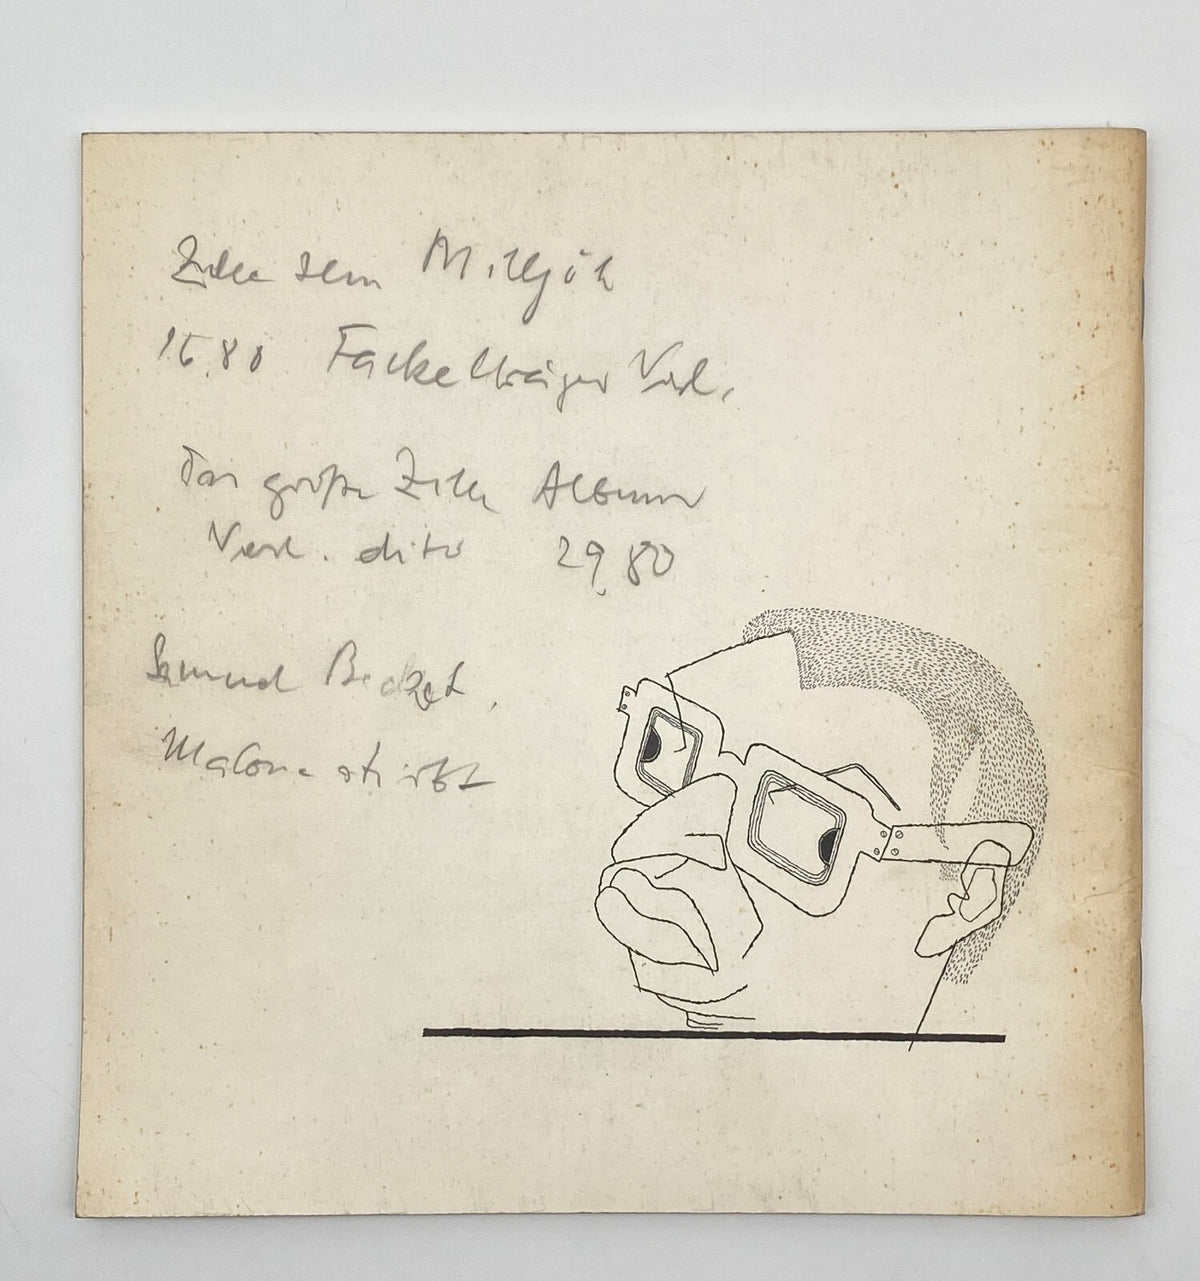 Zille sein Milljöh
16.80 Fackelträger Verl.
Das große Zille Album
Verl. dito 29,80
Samuel Becket,
Malone stirbt